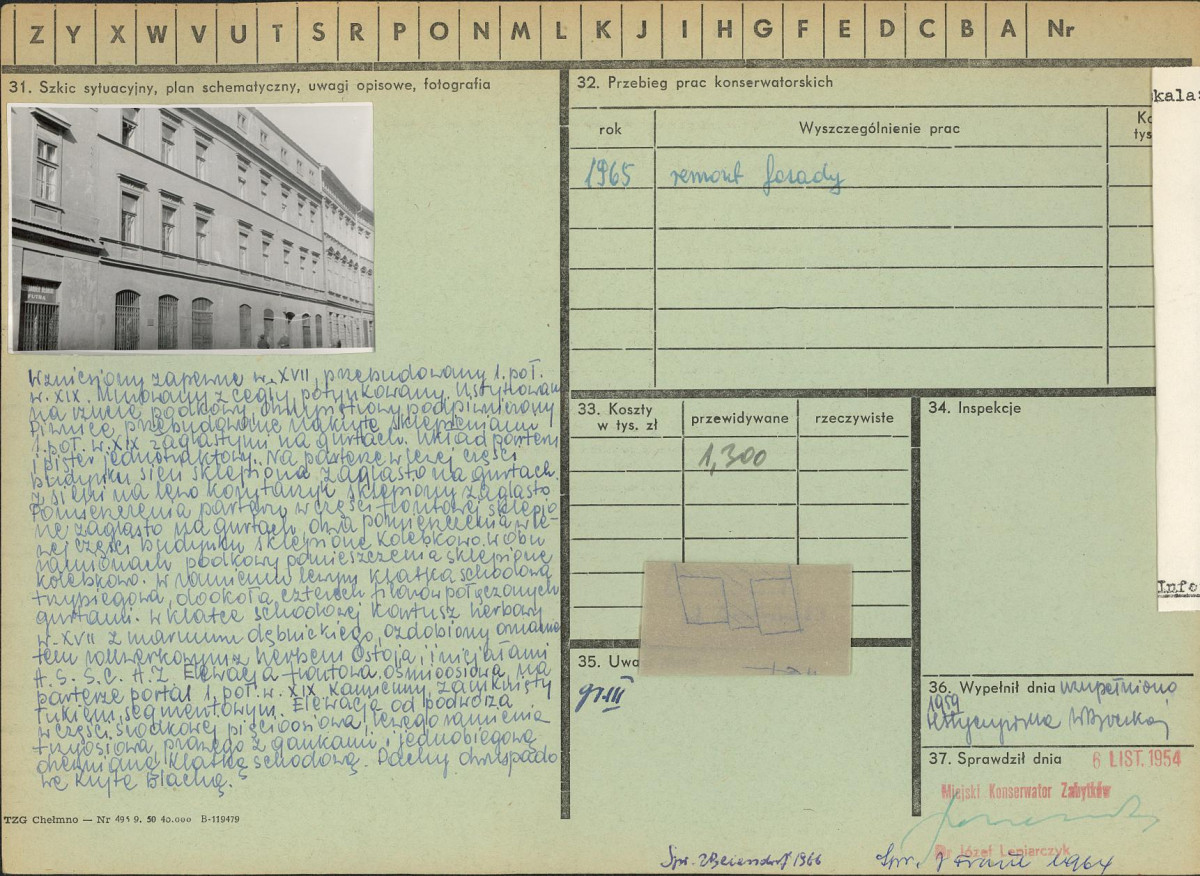 Z Y X W V U T S R P O N M L K J I H G F E D C B A Nr
31. Szkic sytuacyjny, plan schematyczny, uwagi opisowe, fotografia
FUTRA
Wzniesiony zapewne w. XVII, przebudowany 1. poł.
w. XIX. Murowany z cegły, potynkowany. Usytuowany
na rzucie podkowy, dwupiętrowy podpiwniczony
Piwnice przebudowane nakryte sklepieniami
1. poł. w. XIX żaglastymi na gurtach. Układ parteru
i pięter jednotraktowy. Na parterze w lewej części
budynku sień sklepiona żaglasto na gurtach.
Z sieni na lewo korytarzyk sklepiony żaglasto
Pomieszczenia parteru w części frontowej sklepio
ne żaglasto na gurtach, dwa pomieszczenia w le-
wej części budynku sklepione kolebkowo. W obu
ramionach podkowy pomieszczenia sklepione
kolebkowo. W ramieniu lewym klatka schodowa
trzybiegowa, dookoła czterech filarów połączonych
gurtami. W klatce schodowej kartusz herbowy
w. XVII z marmuru dębnickiego, ozdobiony orname
tem rollwerkowym z herbem Ostoja i inicjałami
H. S. S. C. A. Z. Elewacja frontowa ośmioosiowa, na
parterze portal 1. poł. w. XIX kamienny, zamknięty
łukiem segmentowym. Elewacja od podwórza
w części środkowej pięcioosiowa, lewego ramienia
trzyosiowa, prawego z gankami i jednobiegową
drewnianą klatką schodową. Dachy dwuspado
we kryte blachą.
TZG Chełmno — Nr 495 9. 50 40.000 B-119479
32. Przebieg prac konserwatorskich
rok Wyszczególnienie prac
Ko
tys
1965 remont fasady
kala:
33. Koszty
w tys. zł
przewidywane rzeczywiste
1,300
34. Inspekcje
Info
35. Uwa
gr. III
36. Wypełnił dnia uzupełniono
1959
37. Sprawdził dnia 6 LIST. 1954
Miejski Konserwator Zabytków
Dr Józef Lepiarczyk
Spr. 1966
Spr. 1964